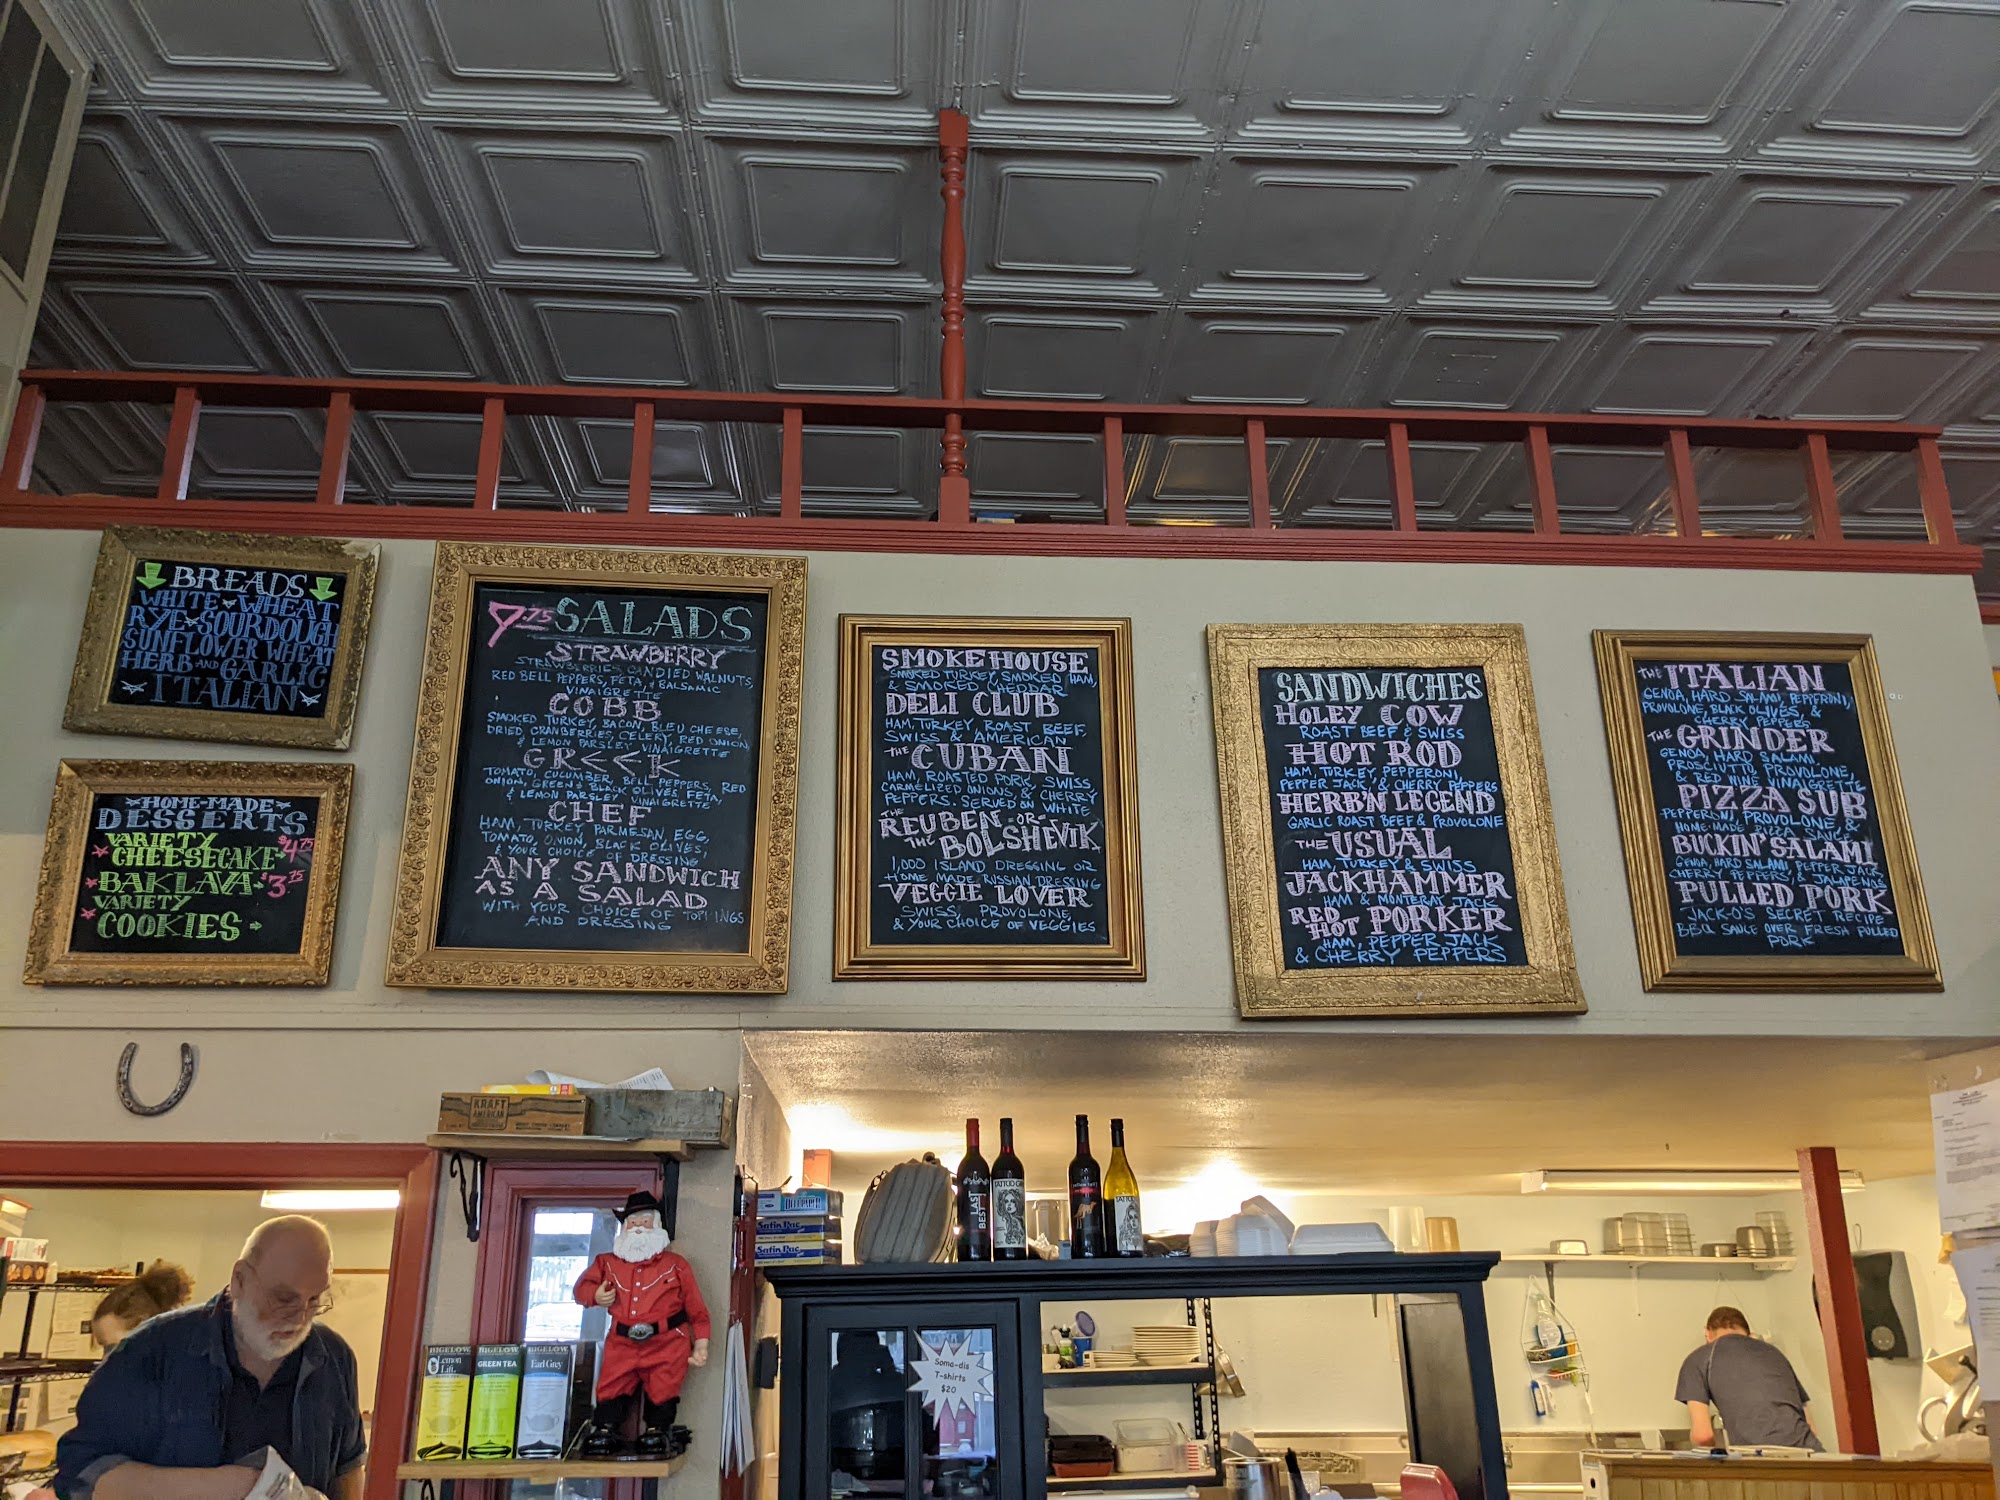 BREADS
WHITE WHEAT
RYE SOURDOUGH
SUNFLOWER WHEAT
HERB AND GARLIC
ITALIAN
HOME-MADE
DESSERTS
VARIETY
CHEESECAKE $4.75
BAKLAVA $3.75
VARIETY
COOKIES
9.75 SALADS
STRAWBERRY
STRAWBERRIES, CANDIED WALNUTS,
RED BELL PEPPERS, FETA, & BALSAMIC
VINAIGRETTE
COBB
SMOKED TURKEY, BACON, BLEU CHEESE,
DRIED CRANBERRIES, CELERY, RED ONION,
& LEMON PARSLEY VINAIGRETTE
GREEK
TOMATO, CUCUMBER, BELL PEPPERS, RED
ONION, GREEN & BLACK OLIVES, FETA,
& LEMON PARSLEY VINAIGRETTE
CHEF
HAM, TURKEY, PARMESAN, EGG,
TOMATO, ONION, BLACK OLIVES,
& YOUR CHOICE OF DRESSING
ANY SANDWICH
AS A SALAD
WITH YOUR CHOICE OF TOPPINGS
AND DRESSING
SMOKEHOUSE
SMOKED TURKEY, SMOKED HAM,
& SMOKED CHEDDAR
DELI CLUB
HAM, TURKEY, ROAST BEEF,
SWISS & AMERICAN
THE CUBAN
HAM, ROASTED PORK, SWISS
CARMELIZED ONIONS, & CHERRY
PEPPERS. SERVED ON WHITE
THE REUBEN -OR-
THE BOLSHEVIK
1,000 ISLAND DRESSING OR
HOME MADE RUSSIAN DRESSING
VEGGIE LOVER
SWISS, PROVOLONE,
& YOUR CHOICE OF VEGGIES
SANDWICHES
HOLEY COW
ROAST BEEF & SWISS
HOT ROD
HAM, TURKEY, PEPPERONI,
PEPPER JACK, & CHERRY PEPPERS
HERB'N LEGEND
GARLIC ROAST BEEF & PROVOLONE
THE USUAL
HAM, TURKEY & SWISS
JACKHAMMER
HAM & MONTERAY JACK
RED HOT PORKER
HAM, PEPPER JACK
& CHERRY PEPPERS
THE ITALIAN
GENOA, HARD SALAMI, PEPPERONI,
PROVOLONE, BLACK OLIVES, &
CHERRY PEPPERS
THE GRINDER
GENOA, HARD SALAMI,
PROSCUITTO, PROVOLONE,
& RED WINE VINAIGRETTE
PIZZA SUB
PEPPERONI, PROVOLONE, &
HOME-MADE PIZZA SAUCE
BUCKIN' SALAMI
GENOA, HARD SALAMI, PEPPER JACK,
CHERRY PEPPERS, & JALAPENOS
PULLED PORK
JACK-O'S SECRET RECIPE
BBQ SAUCE OVER FRESH PULLED
PORK
KRAFT
AMERICAN
BIGELOW
Lemon
Lift
BIGELOW
GREEN TEA
BIGELOW
Earl Grey
Satin Pac
Satin Pac
LAST
BEST
TATTOO GIRL
TATTOO
Some-dis
T-shirts
$20